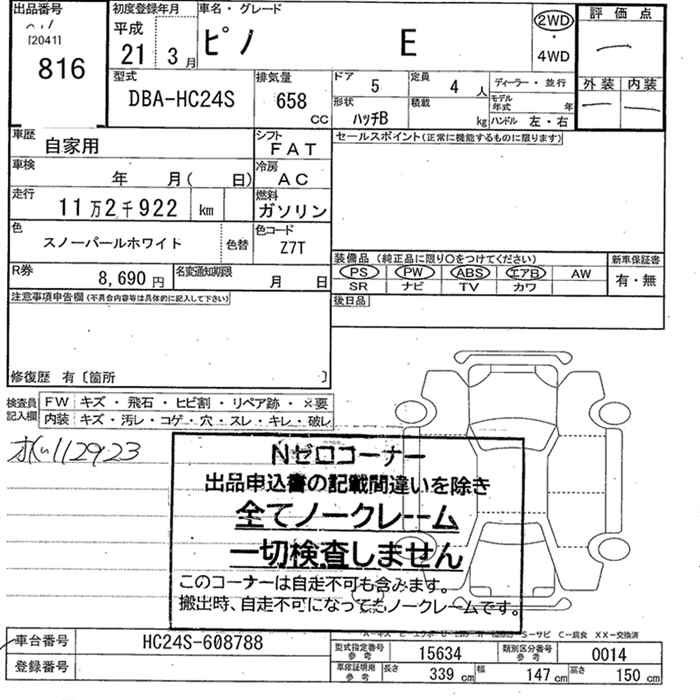 出品番号
[2041]
816
初度登録年月
平成
21 3月
車名・グレード
ピノ E
2WD
4WD
評価点
外装 内装
型式
DBA-HC24S
排気量
658
CC
ドア 5
定員 4 人
ディーラー・並行
形状
ハッチB
積載
kg
モデル年式 年
ハンドル 左・右
車歴
自家用
シフト
FAT
セールスポイント(正常に機能するものに限ります)
車検
年 月( 日)
冷房
AC
走行
11万2千922 km
燃料
ガソリン
色
スノーパールホワイト
色替
色コード
Z7T
装備品 (純正品に限り○をつけてください)
新車保証書
PS PW ABS エアB AW
SR ナビ TV カワ
有・無
R券
8,690円
名変通知期限
月 日
後日品
注意事項申告欄(不具合内容等は具体的に記入して下さい)
修復歴 有〔箇所 〕
検査員記入欄
FW キズ・飛石・ヒビ割・リペア跡・×要
内装 キズ・汚レ・コゲ・穴・スレ・キレ・破レ
112923
Nゼロコーナー
出品申込書の記載間違いを除き
全てノークレーム
一切検査しません
このコーナーは自走不可も含みます。
搬出時、自走不可になってもノークレームです。
S-サビ C-腐食 XX-交換済
車台番号
HC24S-608788
登録番号
型式指定番号
参考
15634
類別区分番号
参考
0014
車庫証明用
参考
長さ 339 cm
幅 147 cm
高さ 150 cm